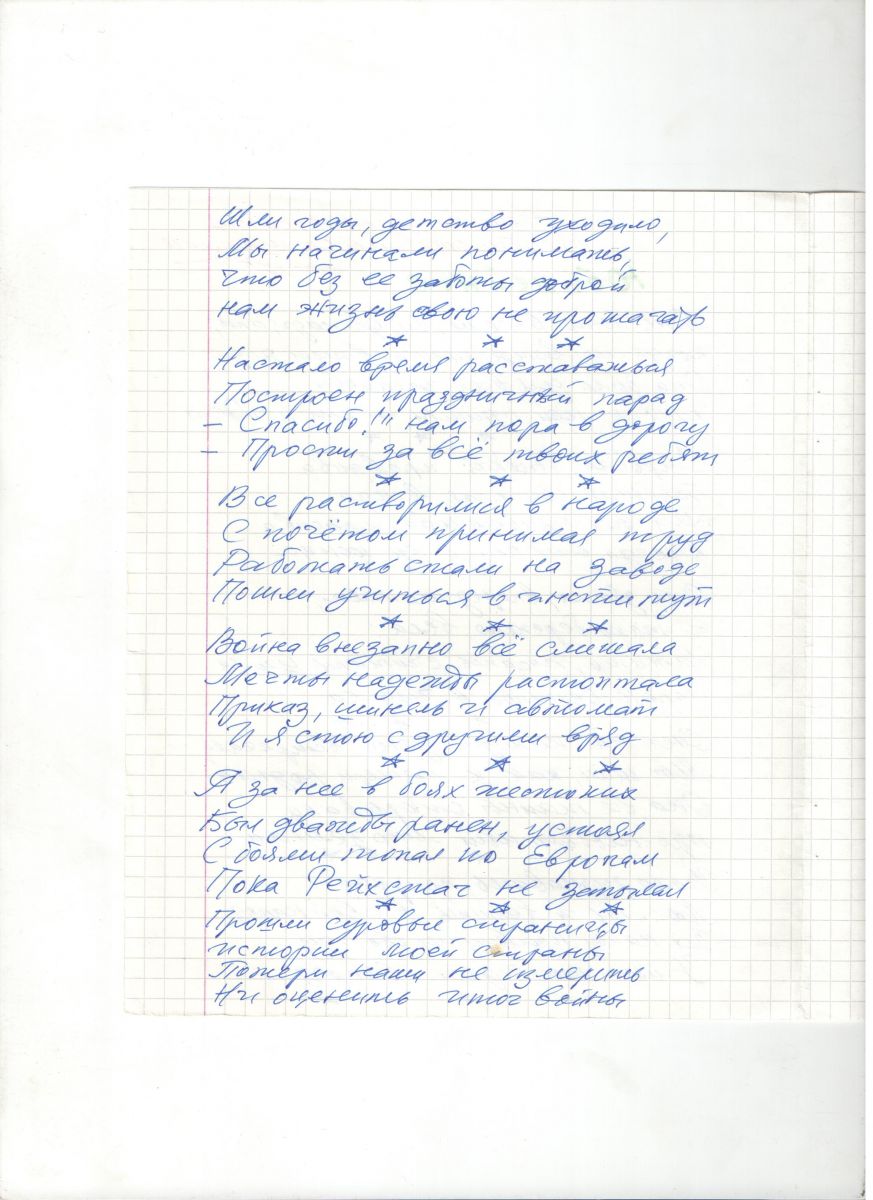 Шли годы, детство уходило,
Мы начинали понимать,
что без ее заботы доброй
нам жизнь свою не прошагать
* * *
Настало время расставаться
Построен праздничный парад
– Спасибо!" нам пора в дорогу
– Прости за всё твоих ребят
* * *
Все растворилися в народе
С почётом принимая труд
Работать стали на заводе
Пошли учиться в институт
* * *
Война внезапно всё смешала
Мечты надежды растоптала
Приказ, шинель и автомат
И я стою с другими вряд
* * *
Я за нее в боях жестоких
Был дважды ранен, устоял
С боями топал по Европам
Пока Рейхстаг не
* * *
Прошли суровые страницы
истории моей страны
Потери наши не измерить
Ни оценить итог войны